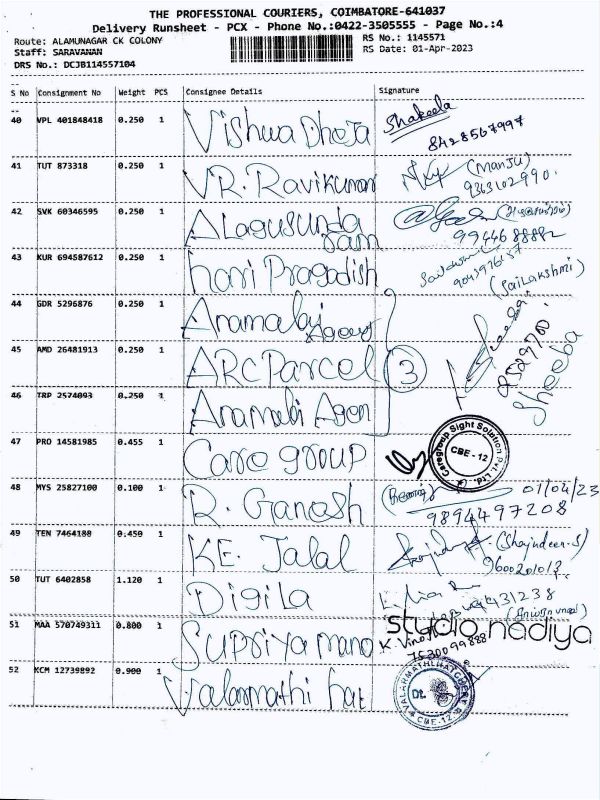 THE PROFESSIONAL COURIERS, COIMBATORE-641037
Delivery Runsheet - PCX - Phone No.:0422-3505555 - Page No.:4
Route: ALAMUNAGAR CK COLONY
RS No.: 1145571
Staff: SARAVANAN
RS Date: 01-Apr-2023
DRS No.: DCJB114557104
S No Consignment No Weight PCS Consignee Details Signature
40 VPL 401848418 0.250 1 Vishwa Dheja Shakeela
8428567997
41 TUT 873318 0.250 1 VR. Ravikumar (Manju)
9363102990
42 SVK 60346595 0.250 1 Alagusunda
ram
43 KUR 694587612 0.250 1 hari Pragadish
(Sailakshmi)
44 GDR 5296876 0.250 1
45 AMD 26481913 0.250 1 ARC Parcel 3
Sheeba
46 TRP 2574093 0.250 1
47 PRO 14581985 0.455 1 Care group
Caregroup Sight Solution Pvt. Ltd.
CBE-12
48 MYS 25827100 0.100 1 R. Ganesh 01/04/23
9894497208
49 TEN 7464188 0.450 1 KE. Jalal (Shajudeen.S)
50 TUT 6402858 1.120 1 Digila
51 MAA 570749311 0.800 1 Supriya mano
studio nadiya
K. Vinoj
7530099888
52 KCM 12739892 0.900 1 Valarmathi hat
VALARMATHI HATCHERY
Dt.
CBE-12